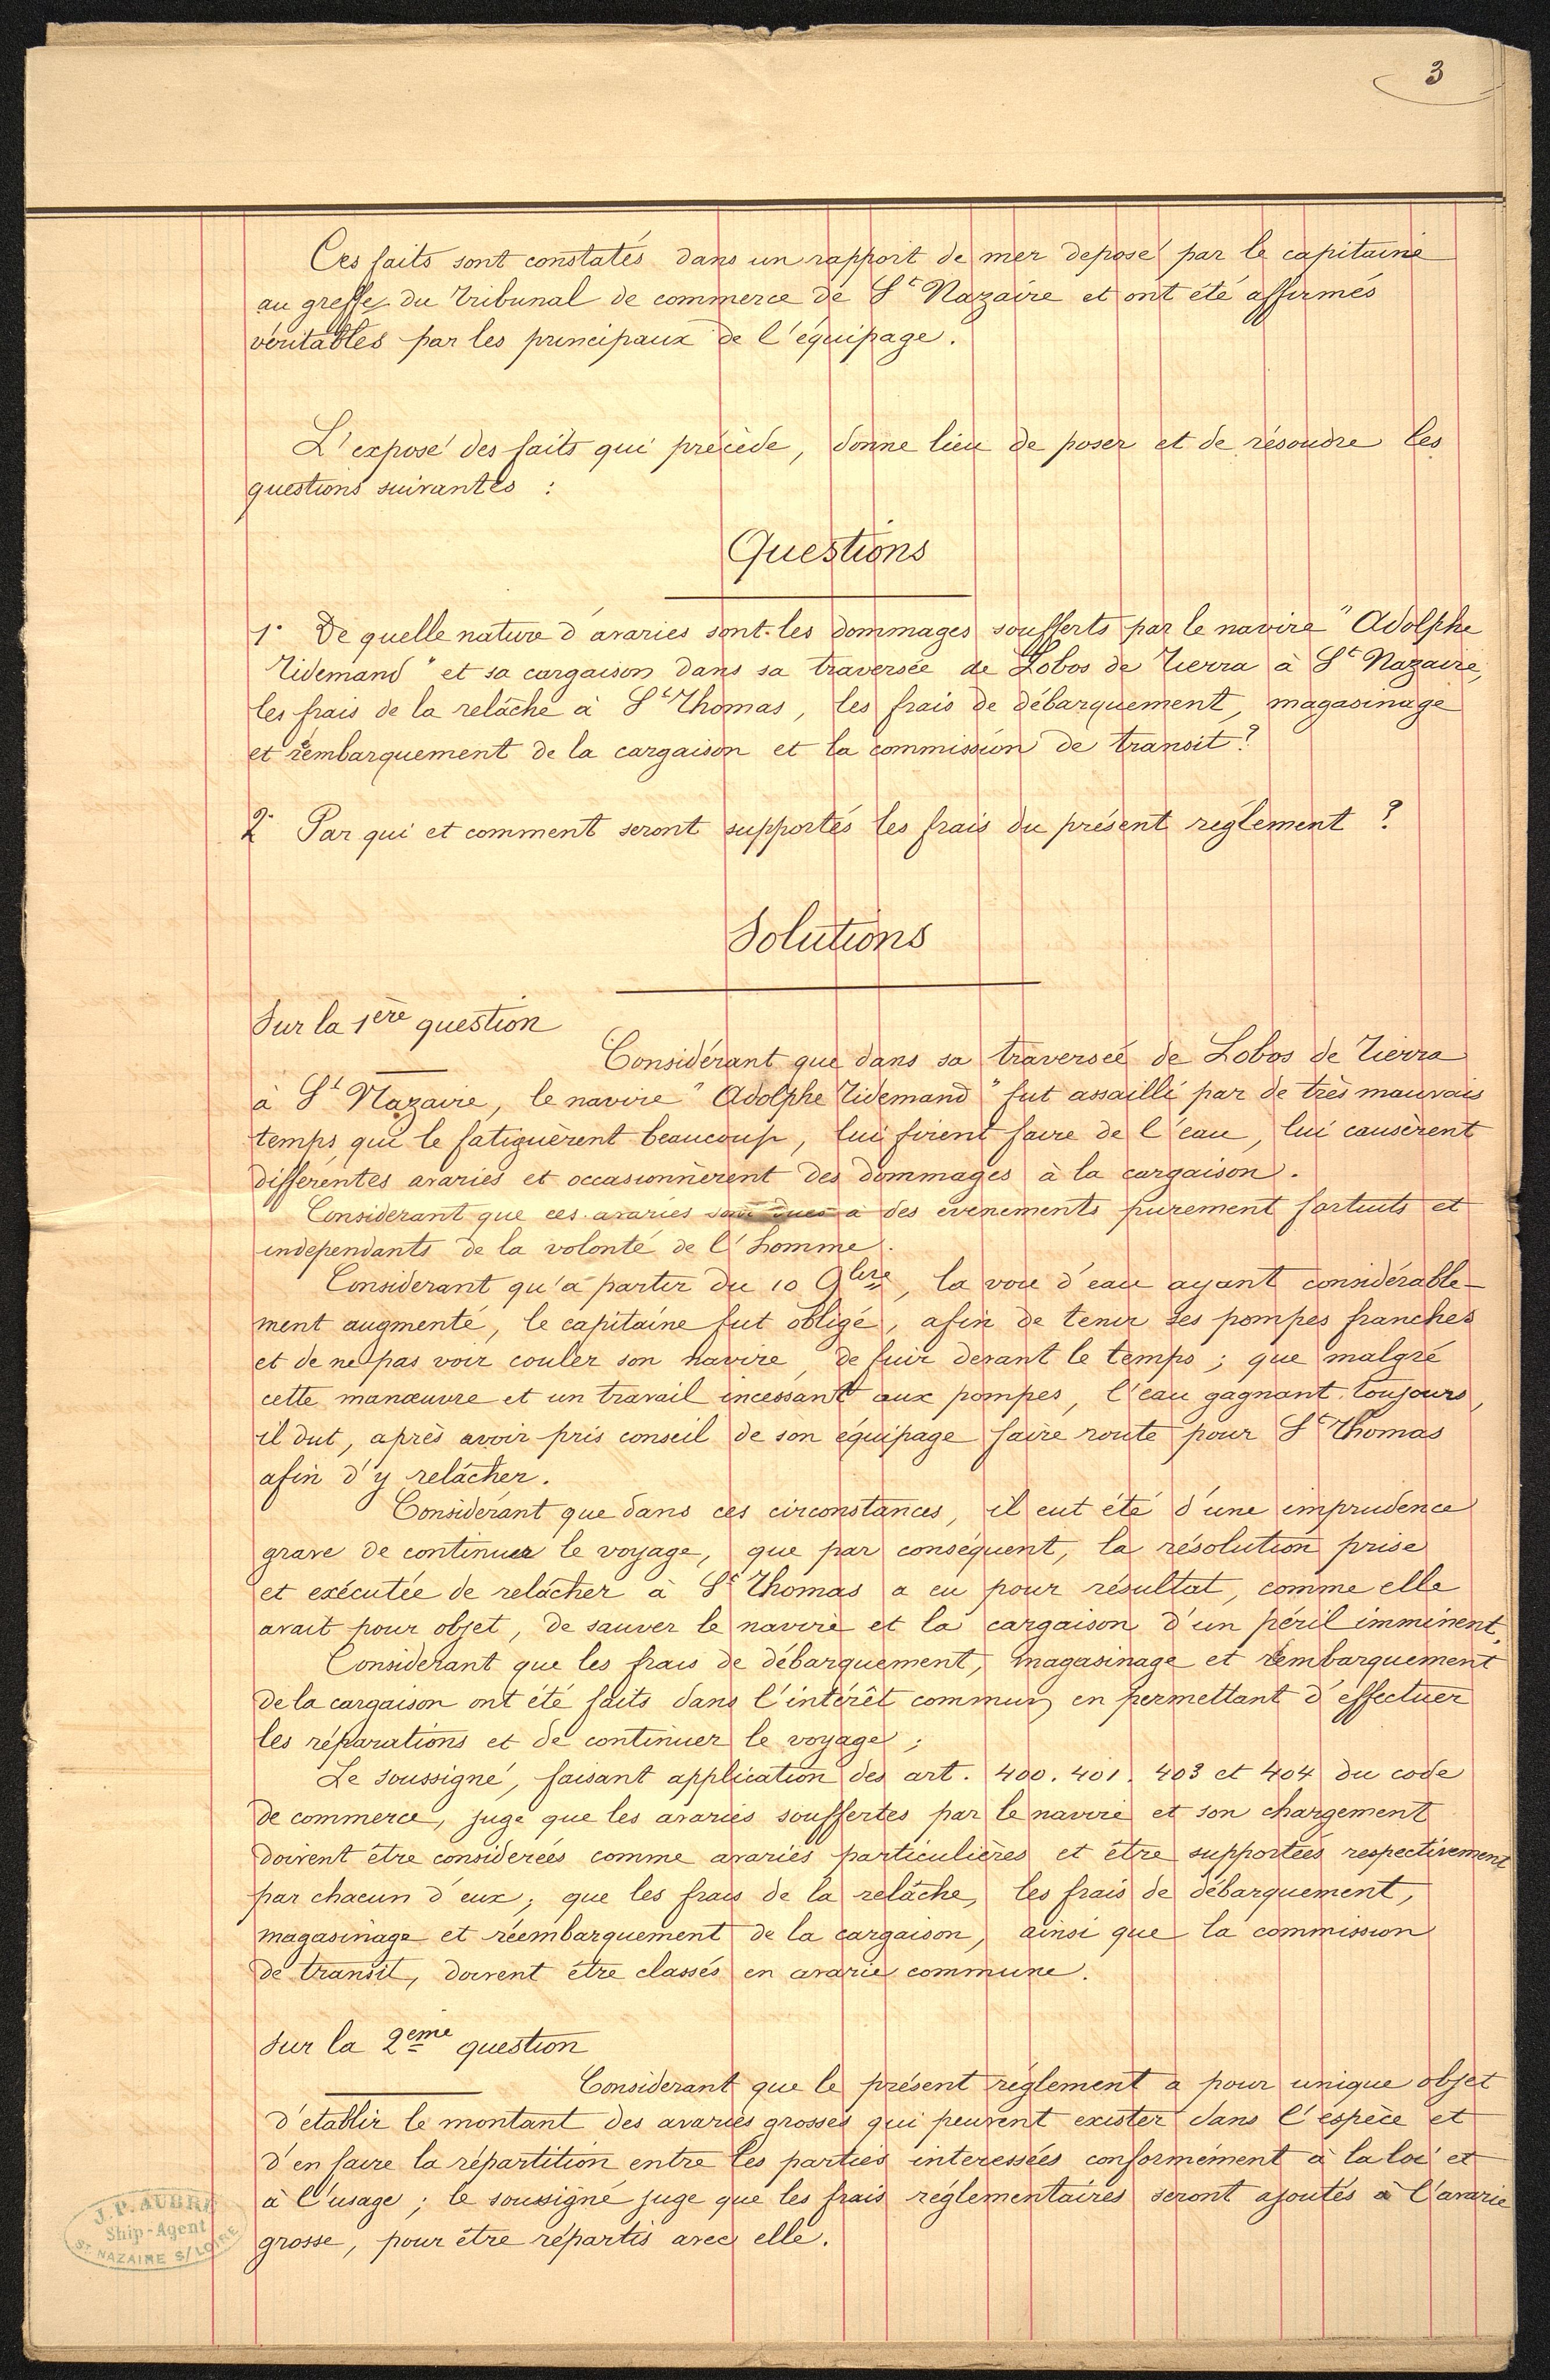 3
Ces faits sont constatés dans un rapport de mer deposé par le capitaine
au greffe du Tribunal de commerce de St Nazaire et ont été affirmés
véritables par les principaux de l'équipage.
L'exposé des faits qui précède, donne lieu de poser et de résoudre les
questions suivantes :
Questions
1° De quelle nature d'avaries sont les dommages soufferts par le navire "Adolphe
Tidemand" et sa cargaison dans sa traversée de Lobos de Tierra à St Nazaire,
les frais de la relâche à St Thomas, les frais de débarquement, magasinage
et rembarquement de la cargaison et la commission de transit ?
2° Par qui et comment seront supportés les frais du présent réglement ?
Solutions
Sur la 1ère question
Considérant que dans sa traversée de Lobos de Tierra
à St Nazaire, le navire "Adolphe Tidemand" fut assailli par de très mauvais
temps qui le fatiguèrent beaucoup, lui firent faire de l'eau, lui causèrent
différentes avaries et occasionnèrent des dommages à la cargaison.
Considerant que ces avaries sont dues à des évenements purement fortuits et
independants de la volonté de l'homme.
Considerant qu'à partir du 10 9bre, la voie d'eau ayant considérable-
ment augmenté, le capitaine fut obligé, afin de tenir ses pompes franches
et de ne pas voir couler son navire, de fuir devant le temps ; que malgré
cette manœuvre et un travail incessant aux pompes, l'eau gagnant toujours,
il dut, après avoir pris conseil de son équipage faire route pour St Thomas
afin d'y relâcher.
Considérant que dans ces circonstances, il eut été d'une imprudence
grave de continuer le voyage, que par conséquent, la résolution prise
et exécutée de relâcher à St Thomas a eu pour résultat, comme elle
avait pour objet, de sauver le navire et la cargaison d'un péril imminent.
Considerant que les frais de débarquement, magasinage et rembarquement
de la cargaison ont été faits dans l'intérêt commun en permettant d'effectuer
les réparations et de continuer le voyage ;
Le soussigné, faisant application des art. 400. 401. 403 et 404 du code
de commerce, juge que les avaries souffertes par le navire et son chargement
doivent être considerées comme avaries particulières et être supportées respectivement
par chacun d'eux ; que les frais de la relâche, les frais de débarquement,
magasinage et réembarquement de la cargaison, ainsi que la commission
de transit, doivent être classés en avarie commune.
Sur la 2eme question
Considerant que le présent réglement a pour unique objet
d'etablir le montant des avaries grosses qui peuvent exister dans l'éspèce et
d'en faire la répartition entre les parties interessées conformément à la loi et
à l'usage ; le soussigné juge que les frais réglementaires seront ajoutés à l'avarie
grosse, pour être répartis avec elle.
J. P. AUBRÉ
Ship-Agent
ST NAZAIRE S/LOIRE